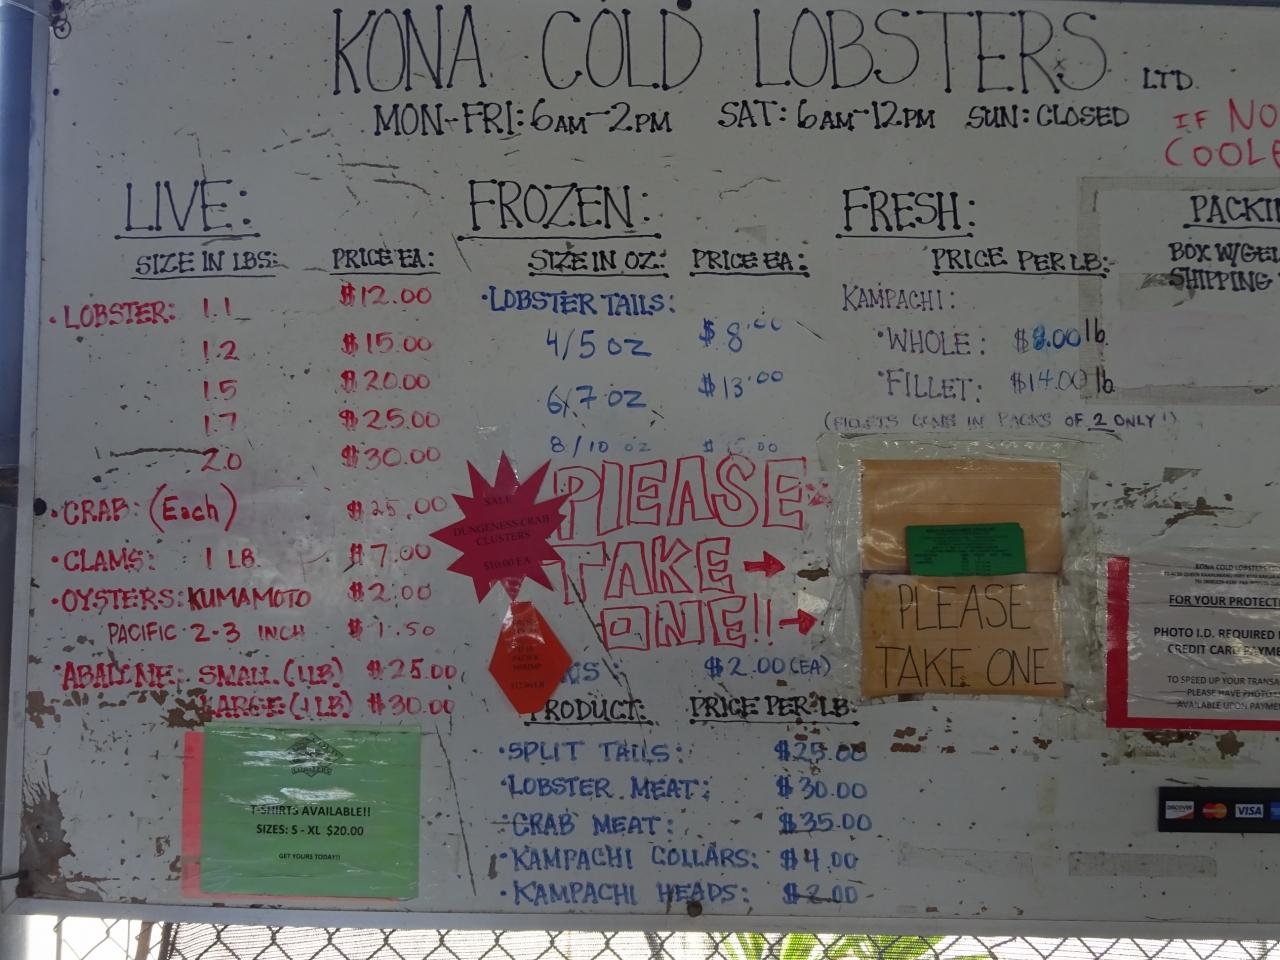 KONA COLD LOBSTERS LTD.
MON-FRI: 6AM-2PM SAT: 6AM-12PM SUN: CLOSED
IF NO
LIVE:
SIZE IN LBS: PRICE EA:
• LOBSTER: 1.1 $12.00
1.2 $15.00
1.5 $20.00
1.7 $25.00
2.0 $30.00
• CRAB: (Each) $25.00
• CLAMS: 1 LB. $7.00
• OYSTERS: KUMAMOTO $2.00
PACIFIC 2-3 INCH $1.50
• ABALONE: SMALL (1LB) $25.00
LARGE (1LB) $30.00
T-SHIRTS AVAILABLE!!
SIZES: S - XL $20.00
GET YOURS TODAY!!
FROZEN:
SIZE IN OZ: PRICE EA:
• LOBSTER TAILS:
4/5 OZ $8.00
6/7 OZ $13.00
8/10 OZ
SALE
DUNGENESS CRAB
CLUSTERS
$10.00 EA
PLEASE
TAKE
ONE!!
PACIFIC
SHRIMP
$2.00 (EA)
PRODUCT: PRICE PER LB:
• SPLIT TAILS: $25.00
• LOBSTER MEAT: $30.00
• CRAB MEAT: $35.00
• KAMPACHI COLLARS: $4.00
• KAMPACHI HEADS: $2.00
FRESH:
PRICE PER LB:
KAMPACHI:
• WHOLE: $8.00 lb.
• FILLET: $14.00 lb.
(FILLETS COME IN PACKS OF 2 ONLY!)
PLEASE
TAKE ONE
BOX W/GEL
SHIPPING
KONA COLD LOBSTERS
PHOTO I.D. REQUIRED
TO SPEED UP YOUR
PLEASE HAVE PHOTO
AVAILABLE UPON
DISCOVER VISA